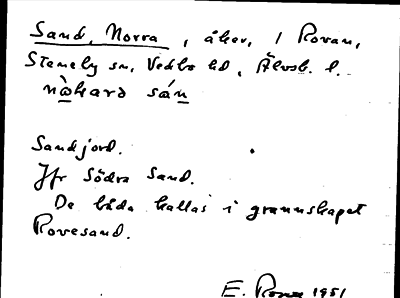 Sand, Norra, åker, i Rovan,
Steneby sn, Vedbo hd, Älvsb. l.
nàhard sán
Sandjord.
Jfr Södra Sand.
De båda kallas i grannskapet
Rovesand.
E. 1951